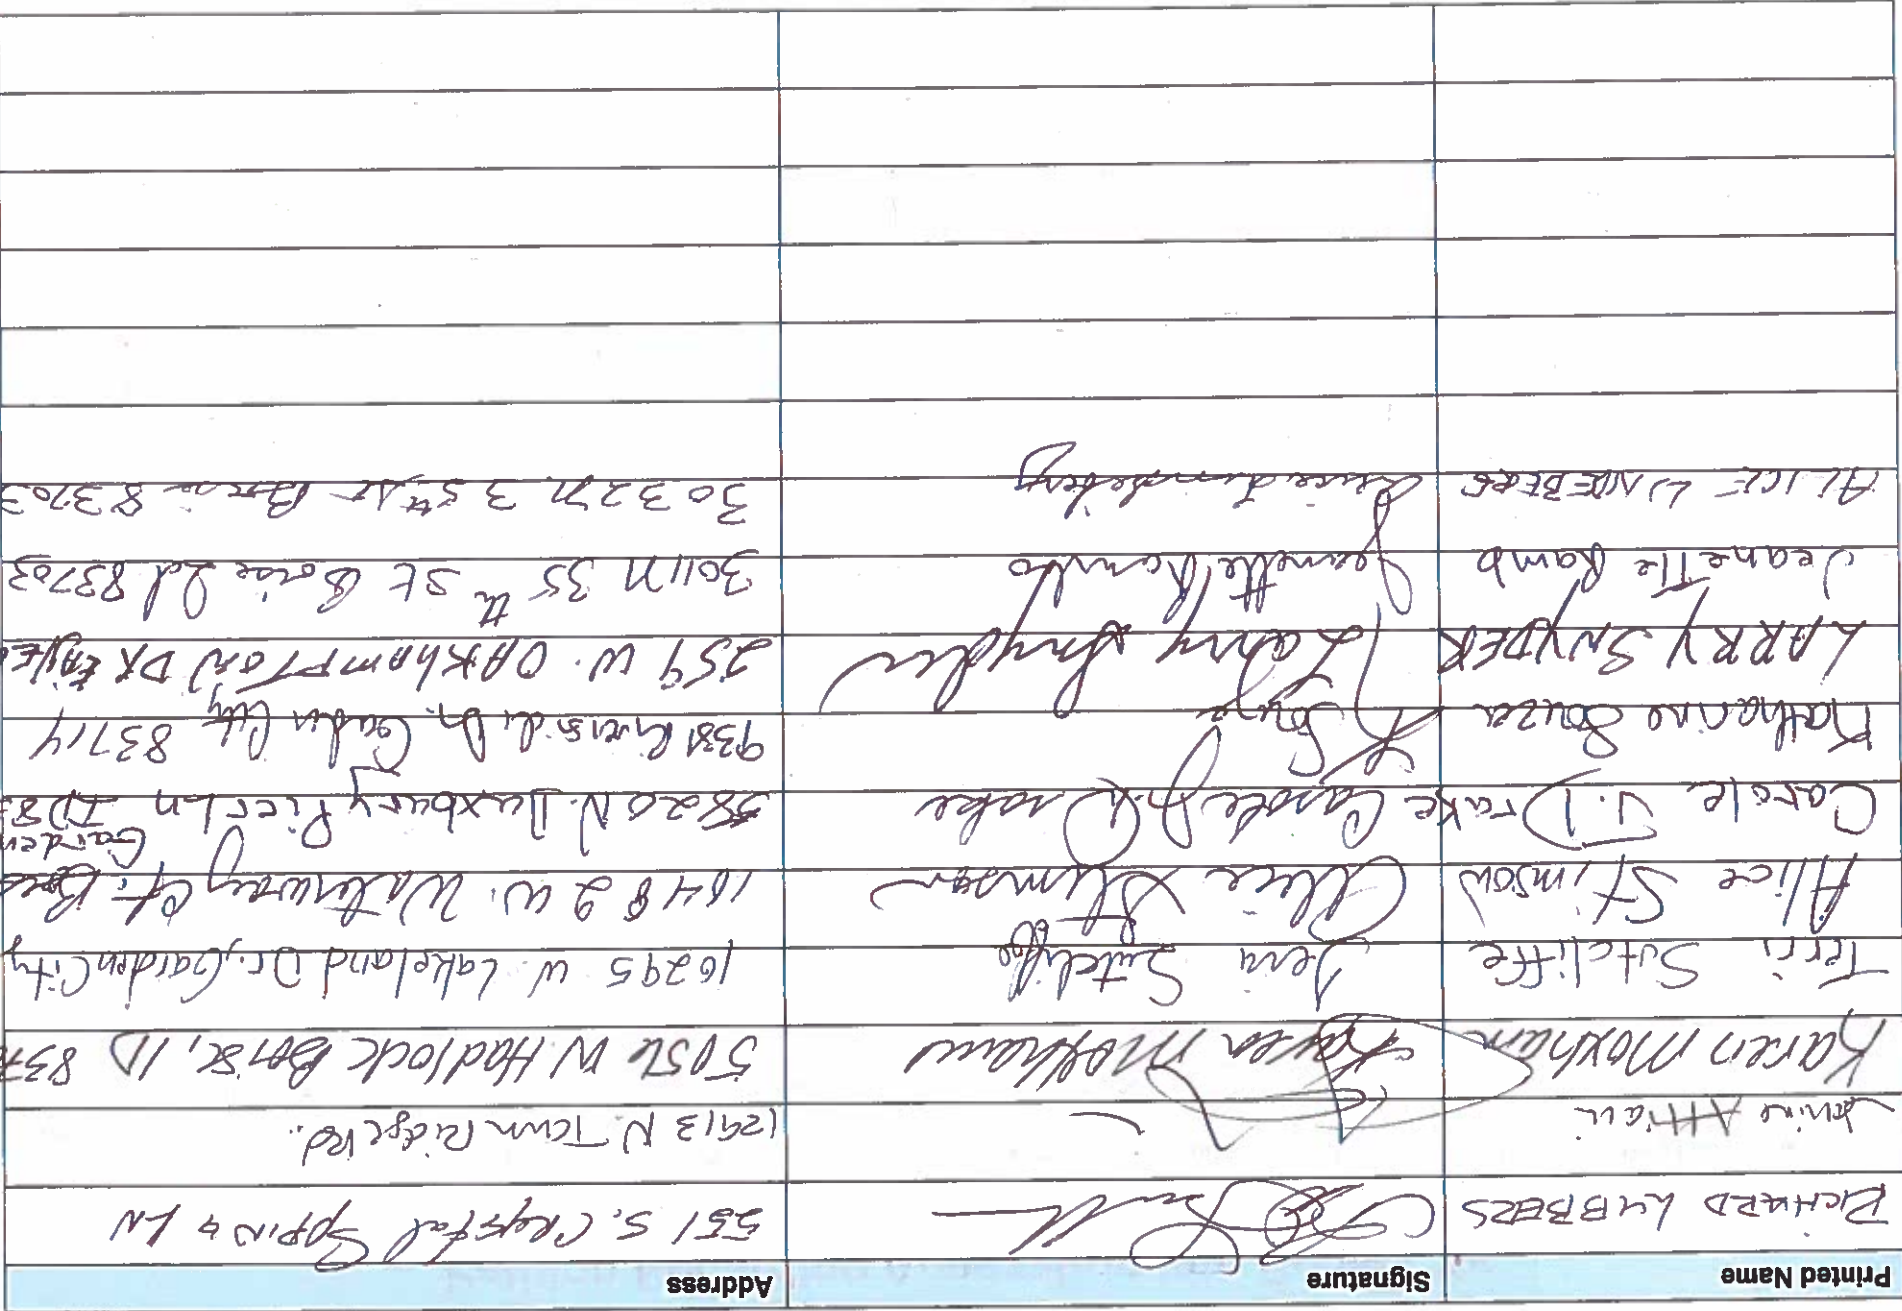 Printed Name Signature Address
RICHARD LUBBERS 551 S. CRYSTAL SPRING LN
Attiani 12913 N. Town Ridge Rd.
Karen Moxham Karen Moxham 5056 W. Hadlock Boise, ID 837
Terri Sutcliffe Terri Sutcliffe 10295 W. Lakeland Dr., Garden City
Alice Stimson Alice Stimson 10482 W. Waterway Ct.
Garden
Carole J. Drake Carole J. Drake 5820 N. Duxbury Pier Ln ID 8
Katharine Souza K Souza 9331 Riverside Dr. Garden City 83714
LARRY SNYDER Larry Snyder 259 W. OAKhAMPTON DR EAgLE
Jeanette Ramb 3011 N 35th St Boise Id 83703
ALICE LINDEBERG Alice Lindeberg 3032 N. 35th St Boise 83703